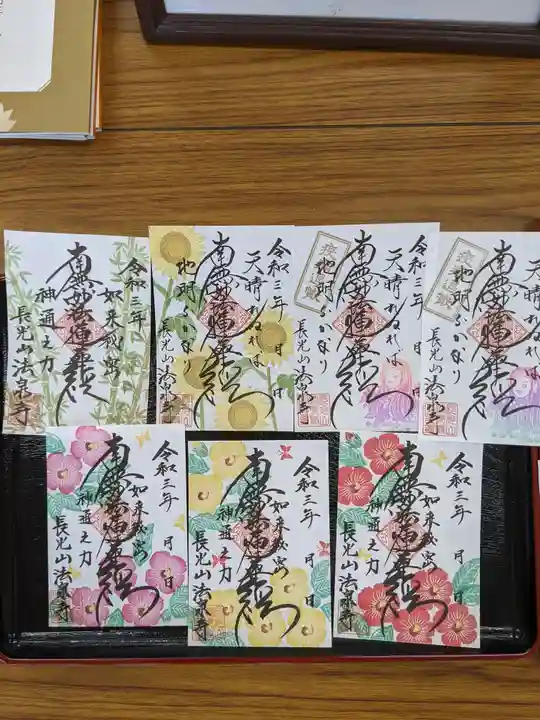 令和三年
如来秘密
南無妙法蓮華経
神通之力
長光山法泉寺
令和三年 月 日
天晴れぬれば
南無妙法蓮華経
地明らかなり
長光山法泉寺
令和三年 月 日
天晴れぬれば
南無妙法蓮華経
地明らかなり
長光山法泉寺
令和三年 月 日
天晴れぬれば
南無妙法蓮華経
地明らかなり
長光山法泉寺
令和三年 月 日
如来秘密
南無妙法蓮華経
神通之力
長光山法泉寺
令和三年 月 日
如来秘密
南無妙法蓮華経
神通之力
長光山法泉寺
令和三年 月 日
如来秘密
南無妙法蓮華経
神通之力
長光山法泉寺